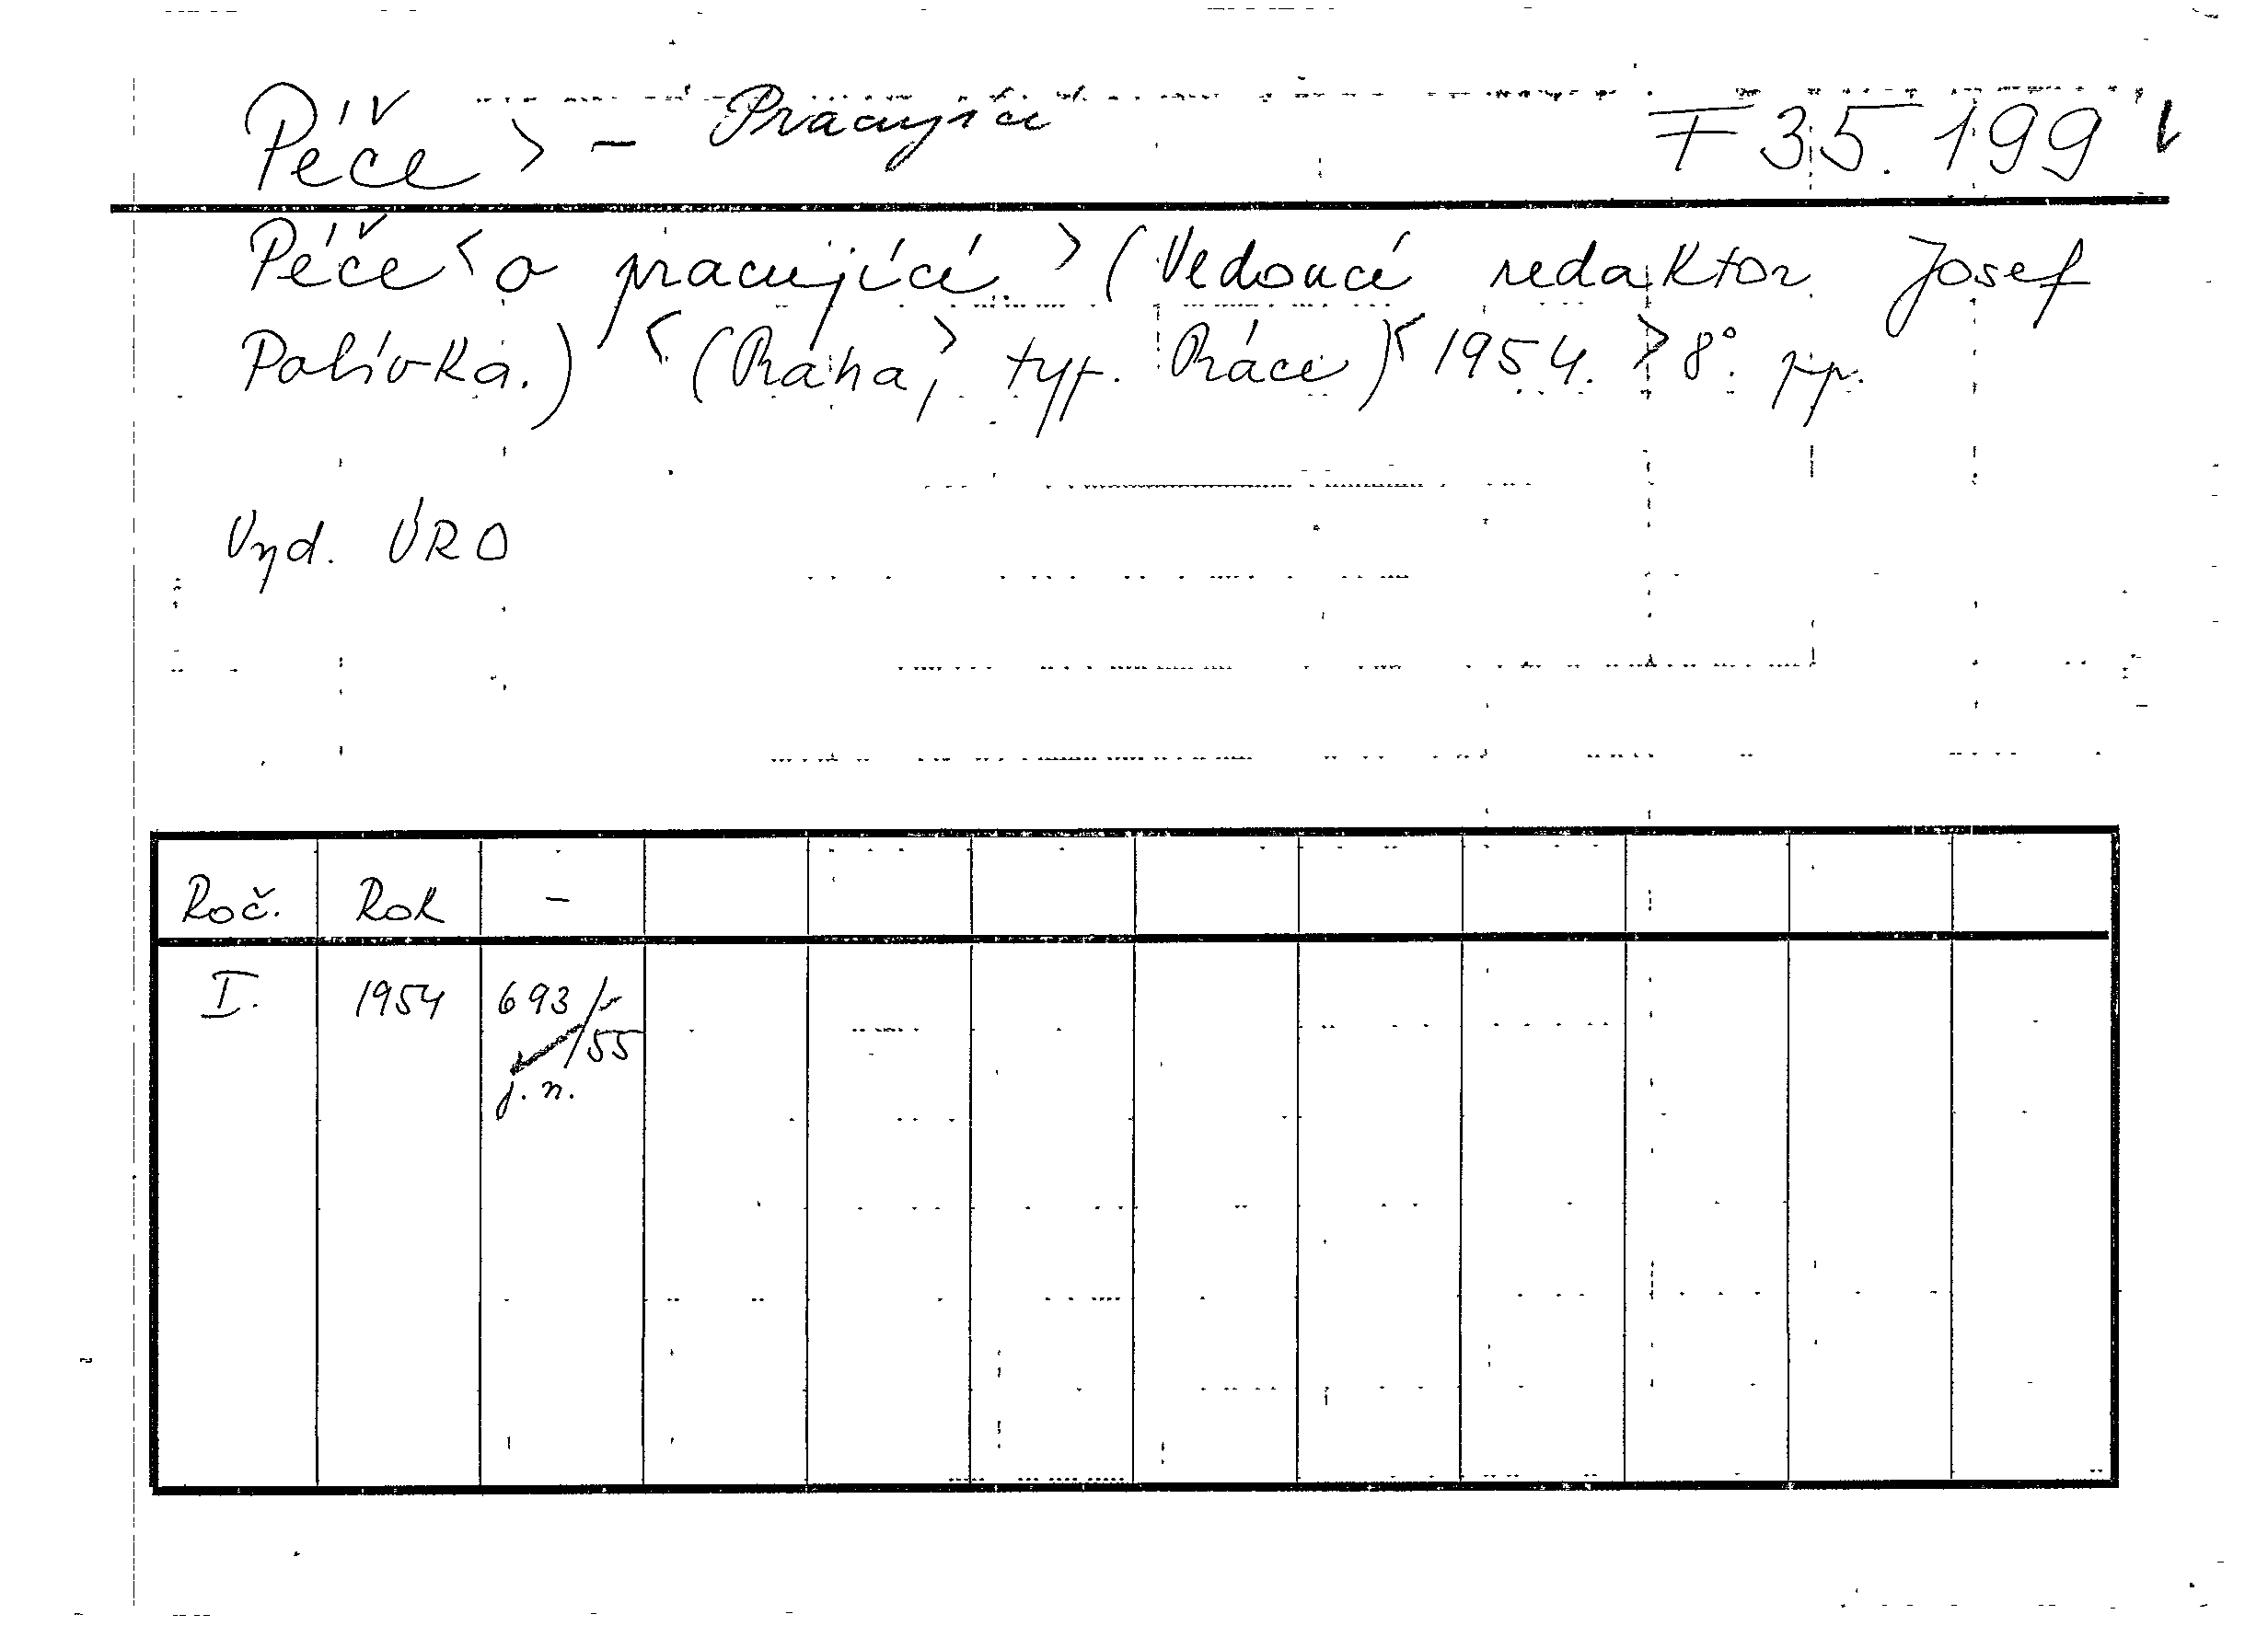 Péče > - Pracující F 35.199 ✓
Péče < o pracující > (Vedoucí redaktor Josef
Polívka.) < (Praha, > typ. Práce) < 1954. > 8°. pp.
Vyd. ÚRO
Roč. Rok -
I. 1954 693/-
/55
j. n.